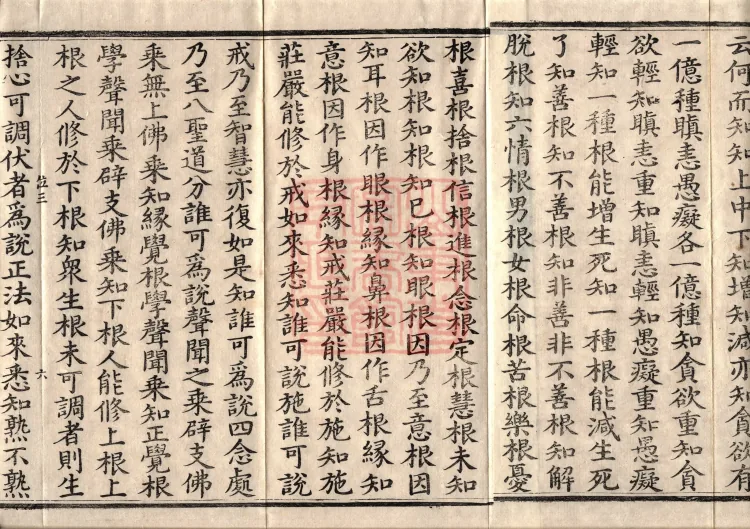 云何而知知上中下知增知減亦知貪欲有
一億種瞋恚愚癡各一億種知貪欲重知貪
欲輕知瞋恚重知瞋恚輕知愚癡重知愚癡
輕知一種根能增生死知一種根能減生死
了知善根知不善根知非善非不善根知解
脫根知六情根男根女根命根苦根樂根憂
根喜根捨根信根進根念根定根慧根未知
欲知根知根知已根知眼根因乃至意根因
知耳根因作眼根緣知鼻根因作舌根緣知
意根因作身根緣知戒莊嚴能修於施知施
莊嚴能修於戒如來悉知誰可說施誰可說
戒乃至智慧亦復如是知誰可爲說四念處
乃至八聖道分誰可爲說聲聞之乘辟支佛
乘無上佛乘知緣覺根學聲聞乘知正覺根
學聲聞乘辟支佛乘知下根人能修上根上
根之人修於下根知衆生根未可調者則生
位三 六
捨心可調伏者爲說正法如來悉知熟不熟